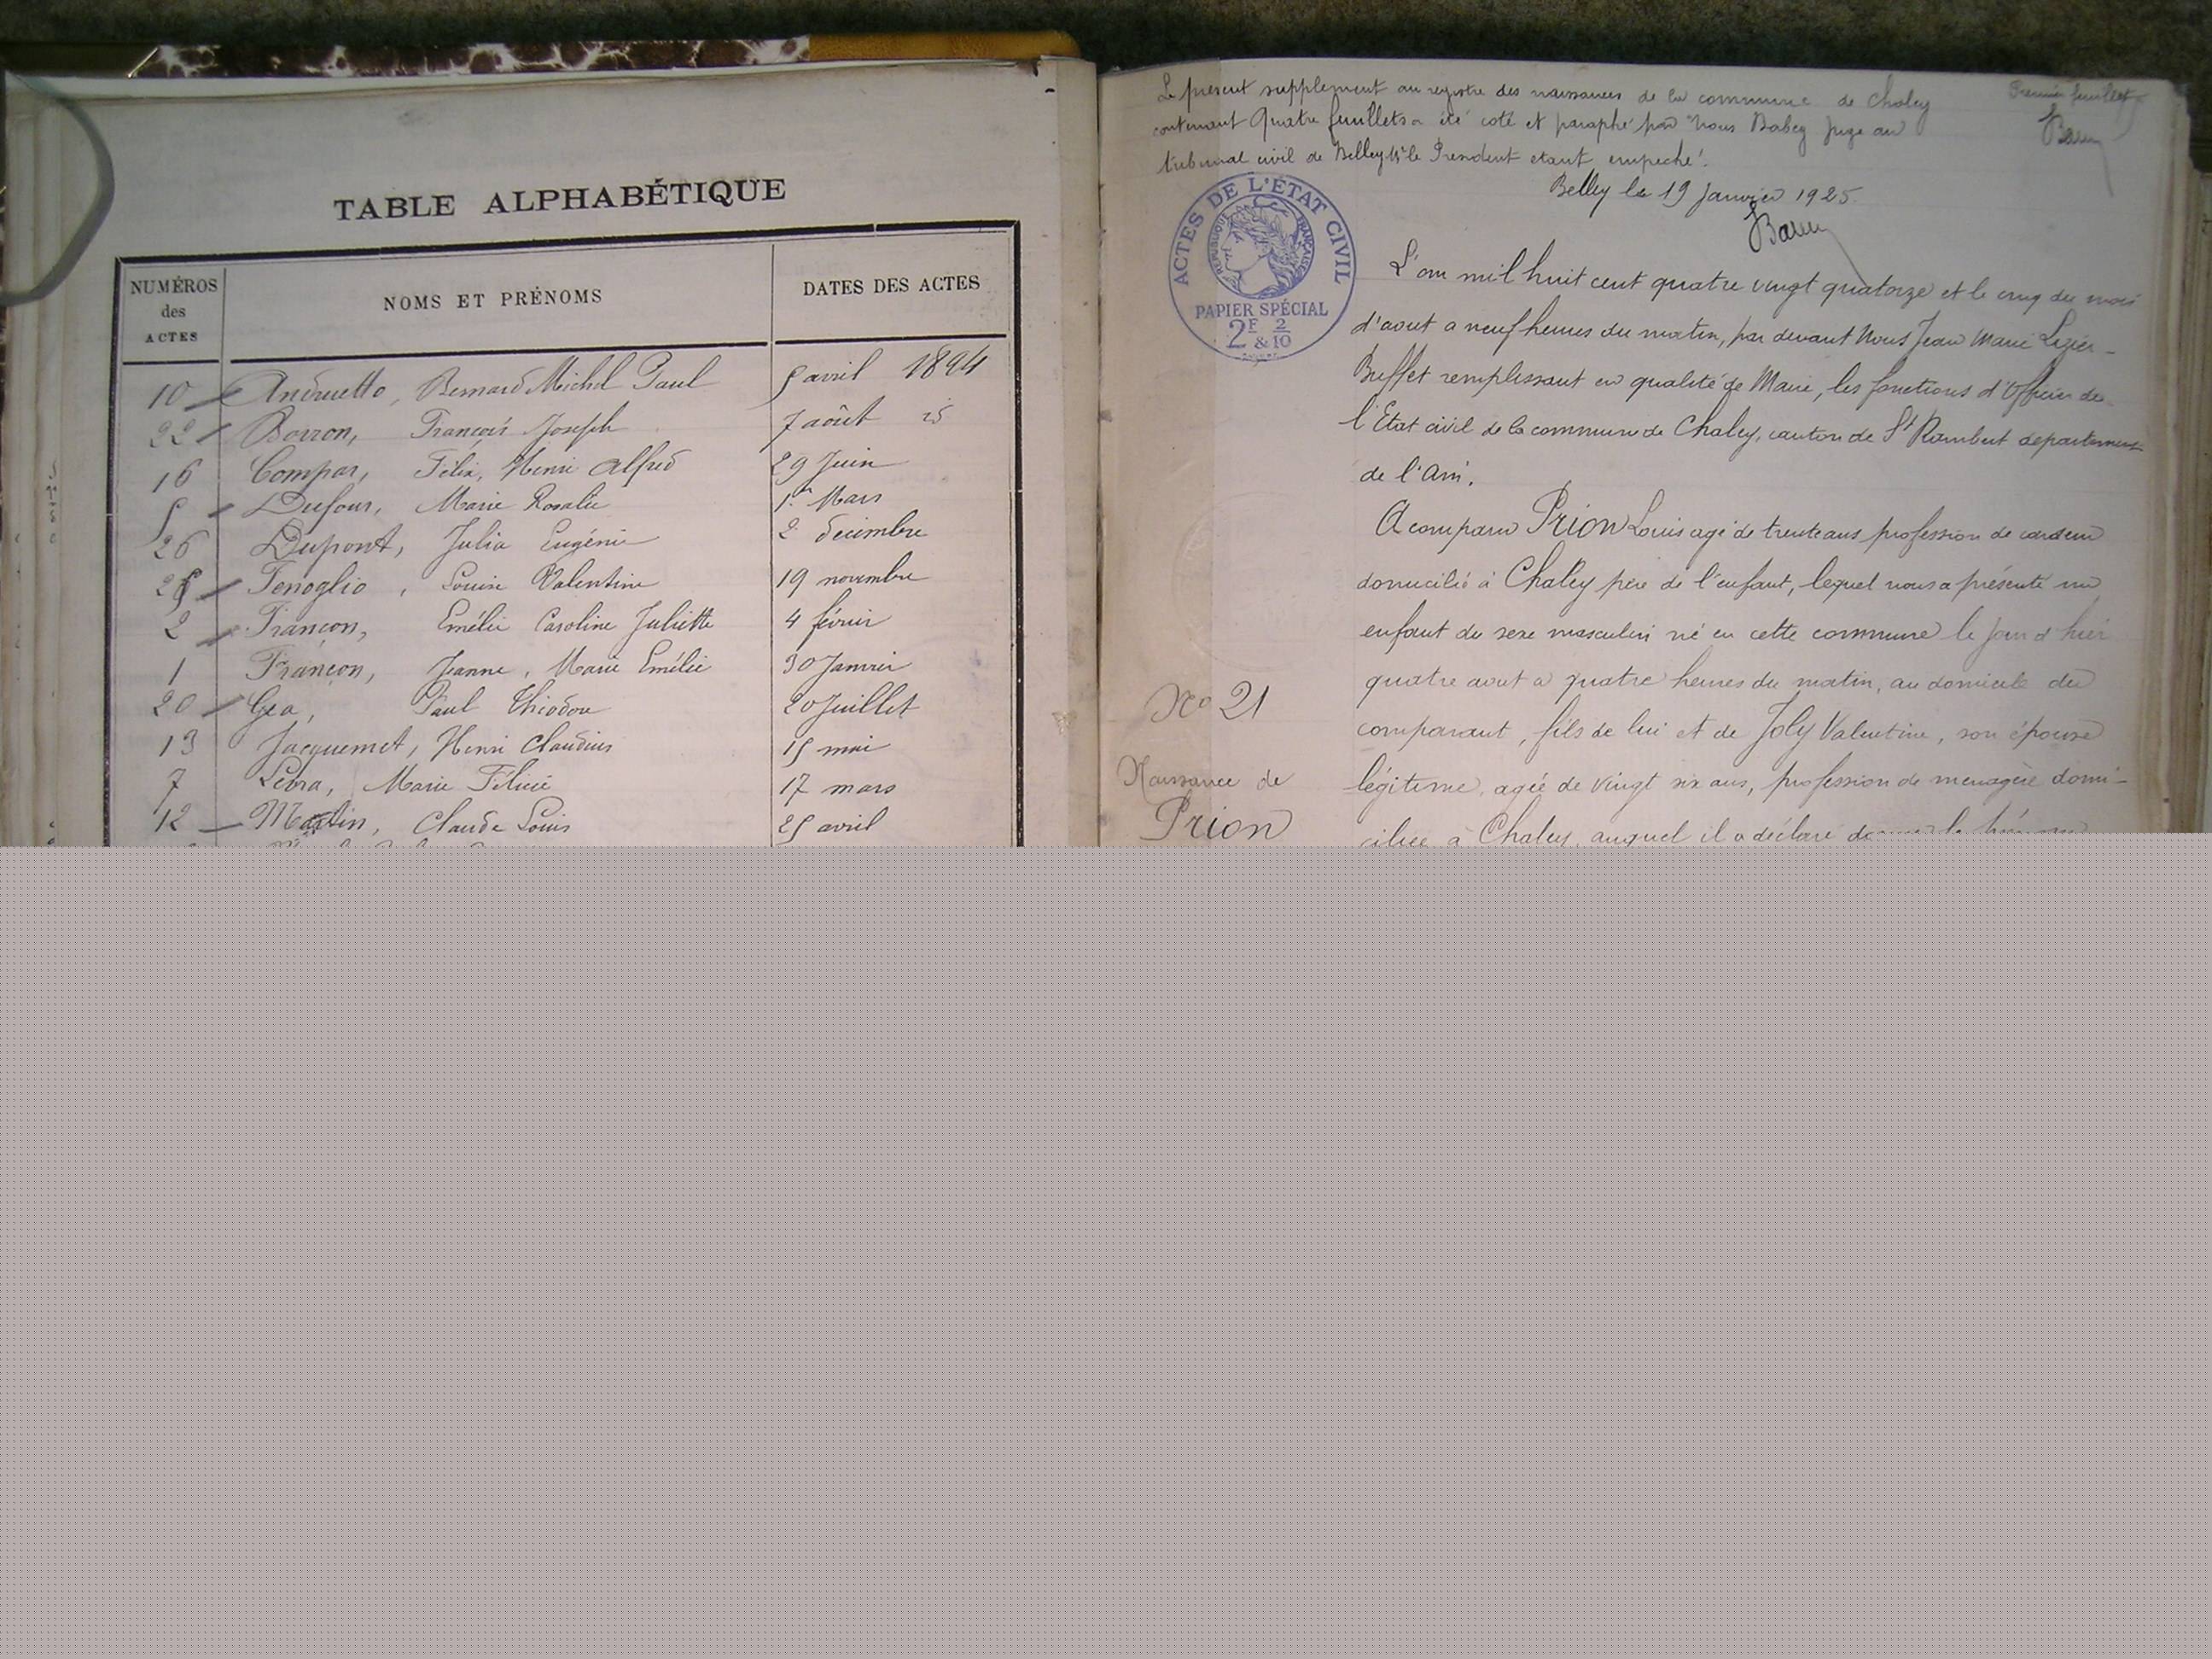 TABLE ALPHABÉTIQUE
NUMÉROS des ACTES
NOMS ET PRÉNOMS
DATES DES ACTES
10 Andruetto, Bernard Michel Paul 5 avril 1894
22 Borron, François Joseph 7 août id
16 Compar, Félix, Henri Alfred 29 Juin
5 Dufour, Marie Rosalie 1er Mars
26 Dupont, Julia Eugénie 2 décembre
25 Fenoglio, Louise Valentine 19 novembre
2 Françon, Emélie Caroline Juliette 4 février
1 Françon, Jeanne, Marie Emélie 30 Janvier
20 Gea, Paul Théodore 20 Juillet
13 Jacquemet, Henri Claudius 15 mai
7 Levra, Marie Félicie 17 mars
12 Martin, Claude Louis 25 avril
Premier feuillet
Le présent supplément au registre des naissances de la commune de Chaley
contenant quatre feuillets a été coté et paraphé par nous juge au
tribunal civil de Belley Mr le Président étant empeché.
Belley le 19 Janvier 1925
ACTES DE L'ÉTAT CIVIL
REPUBLIQUE FRANÇAISE
PAPIER SPÉCIAL
2F & 2/10
L'an mil huit cent quatre vingt quatorze et le cinq du mois
d'aout a neuf heures du matin, par devant Nous Jean Marie
Buffet remplissant en qualité de Maire, les fonctions d'Officier de
l'Etat civil de la commune de Chaley, canton de St Rambert departement
de l'Ain.
A comparu Prion Louis agé de trente ans profession de cardeur
domicilié à Chaley père de l'enfant, lequel nous a présenté un
enfant du sexe masculin né en cette commune le jour d'hier
quatre aout a quatre heures du matin, au domicile du
comparant, fils de lui et de Joly Valentine, son épouse
légitime, agée de vingt six ans, profession de menagère domi-
ciliée à Chaley, auquel il a déclaré
No 21
Naissance de
Prion